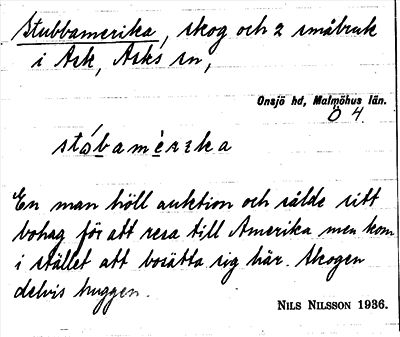 Stubbamerika, skog och 2 småbruk
i Ask, Asks sn,
Onsjö hd, Malmöhus län.
Ö 4.
En man höll auktion och sålde sitt
bohag för att resa till Amerika men kom
i stället att bosätta sig här. Skogen
delvis huggen.
NILS NILSSON 1936.